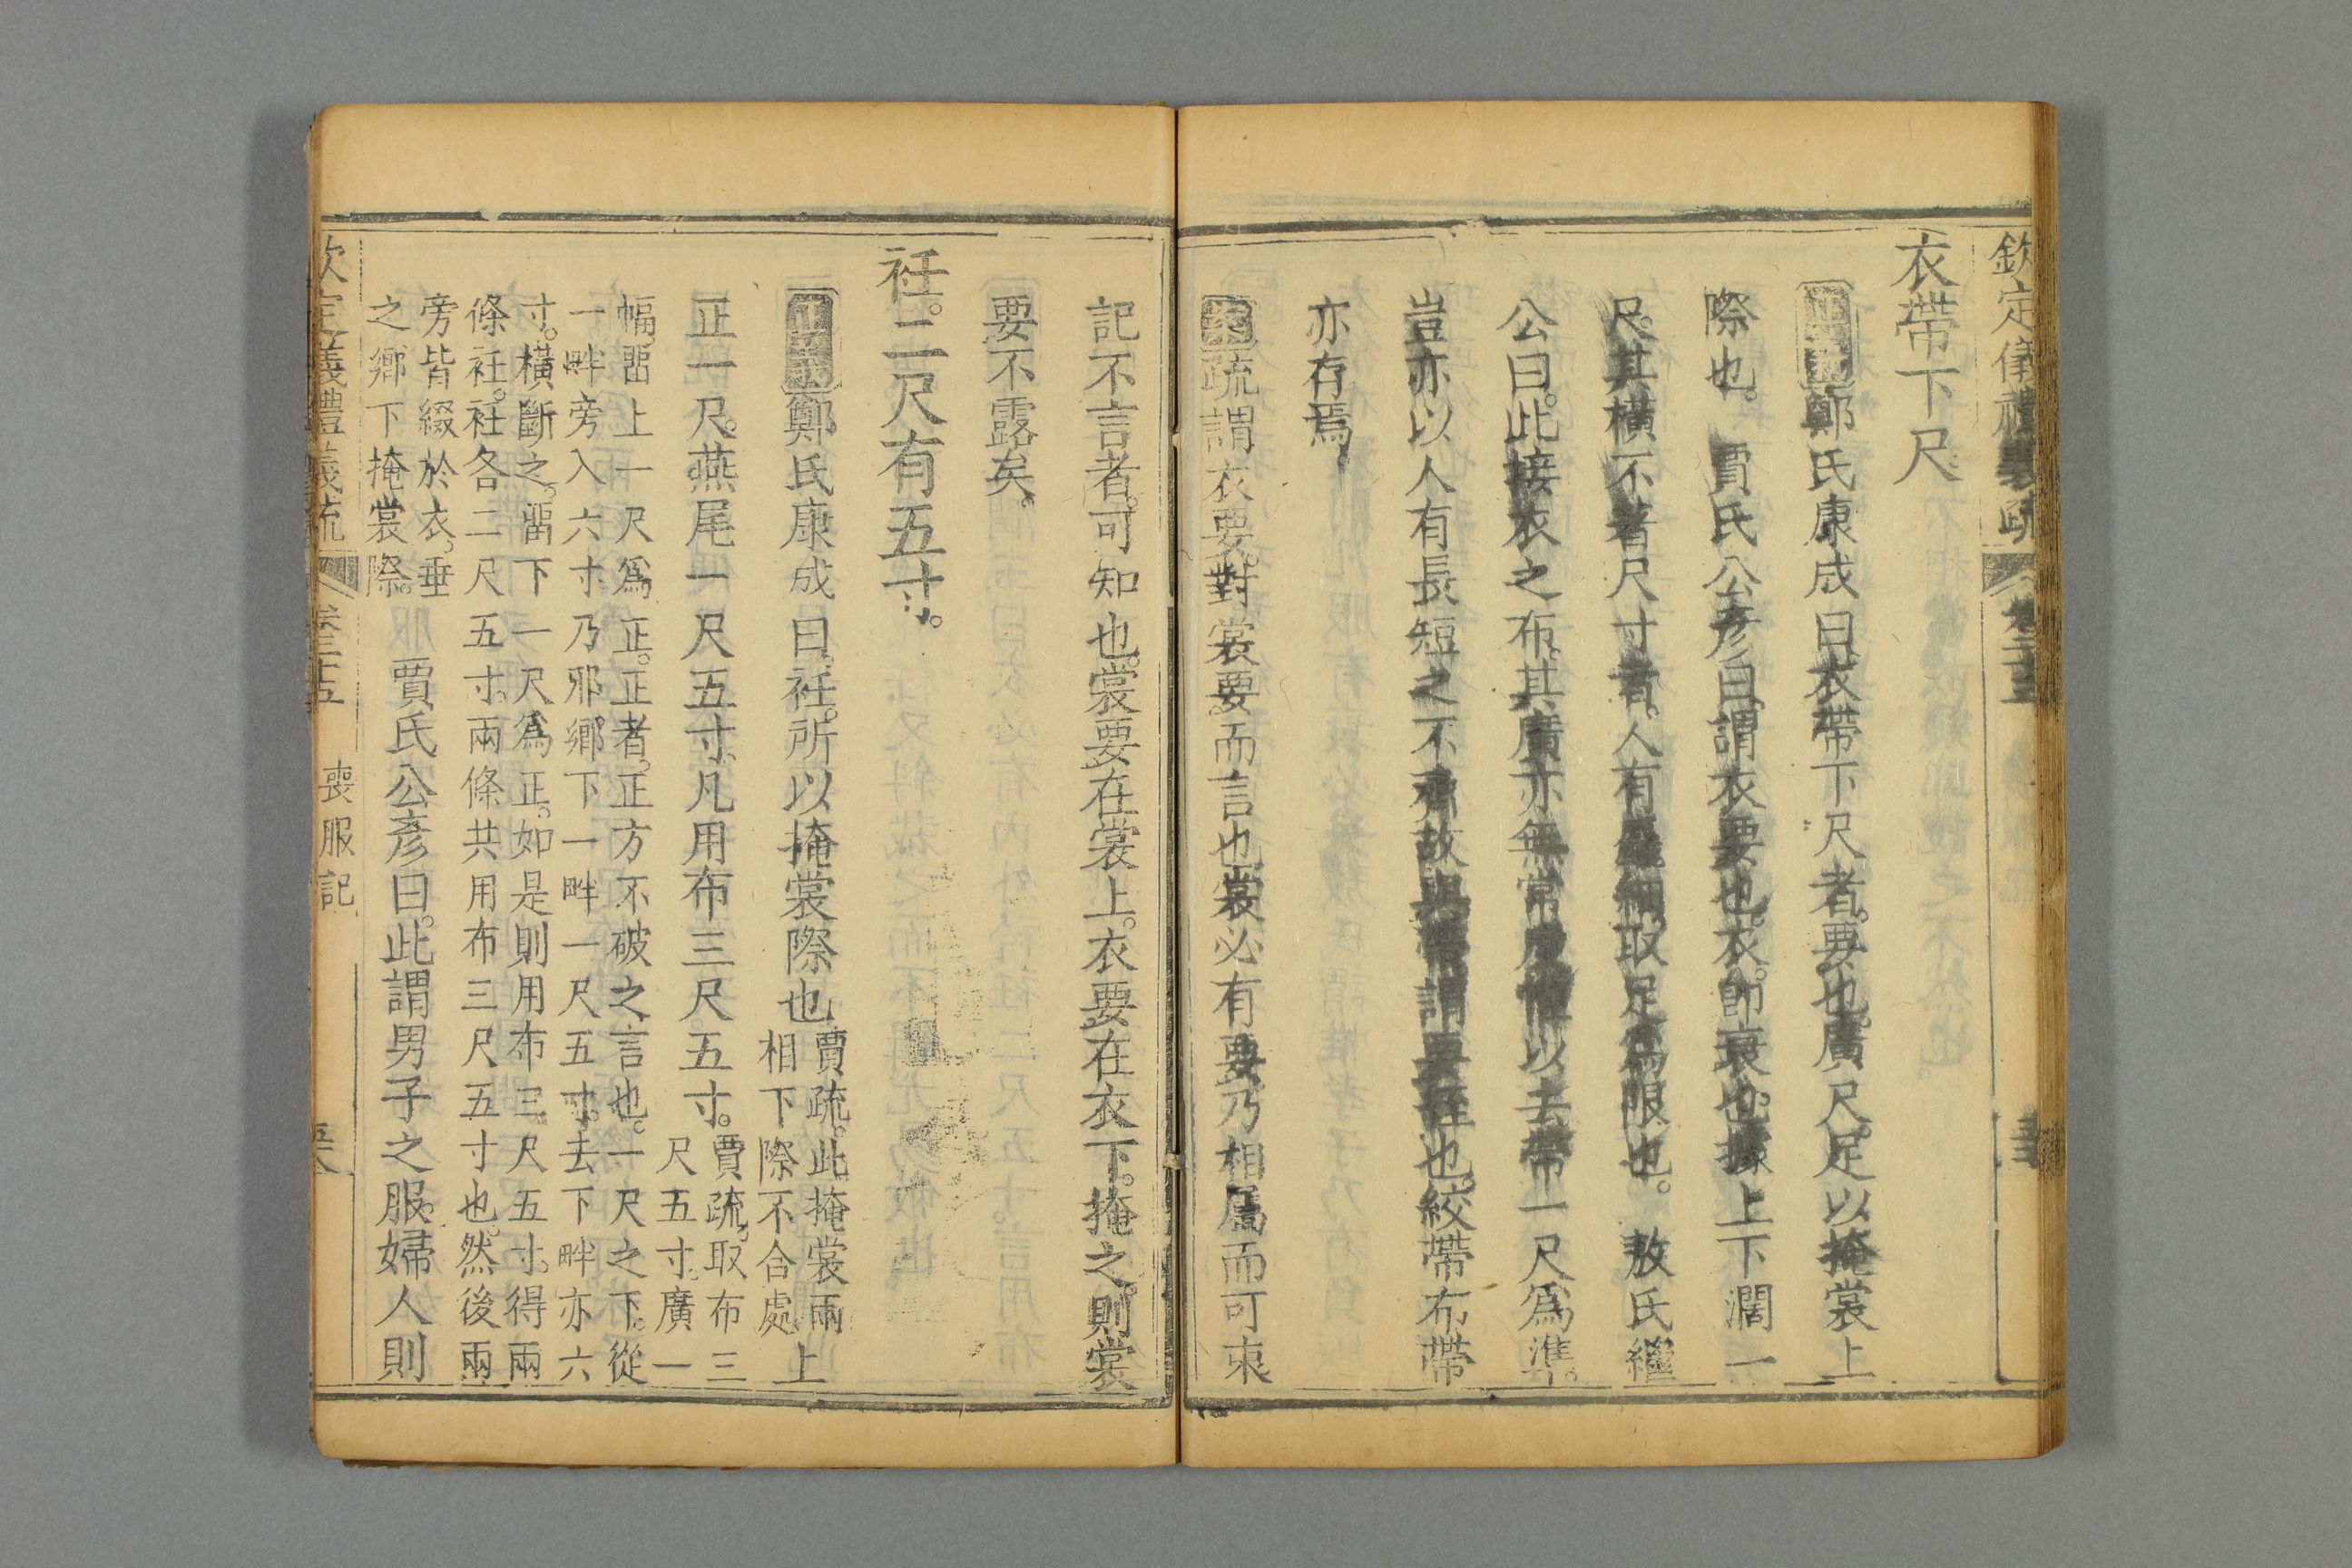 欽定儀禮義疏 卷二十五
衣帶下尺
正義鄭氏康成曰衣帶下尺者。要也。廣尺。足以掩裳上
際也。 賈氏公彥曰。謂衣要也。衣。卽衰也。據上下濶一
尺。其橫不著尺寸者。人有麤細。取足爲限也。 敖氏繼
公曰。此接衣之布。其廣亦無常度。惟以去帶一尺爲準。
豈亦以人有長短之不齊故與帶謂要絰也。絞帶布帶
亦存焉。
案疏謂衣要。對裳要。而言也。裳必有要。乃相屬而可束
記不言者。可知也。裳要在裳上。衣要在衣下。掩之。則裳
要不露矣。
衽。二尺有五寸。
正義鄭氏康成曰。衽。所以掩裳際也。賈疏。此掩裳兩
相下際不合處。上
正一尺。燕尾一尺五寸。凡用布三尺五寸。賈疏。取布三
尺五寸。廣一
幅。畱上一尺爲正。正者。正方不破之言也。一尺之下。從
一畔旁入六寸。乃邪鄉下一畔一尺五寸。去下畔亦六
寸。橫斷之。畱下一尺爲正。如是則用布三尺五寸。得兩
條衽。衽各二尺五寸。兩條共用布三尺五寸也。然後兩
旁皆綴於衣。垂
之鄉下掩裳際。 賈氏公彥曰。此謂男子之服。婦人則
欽定儀禮義疏 卷二十五 喪服記